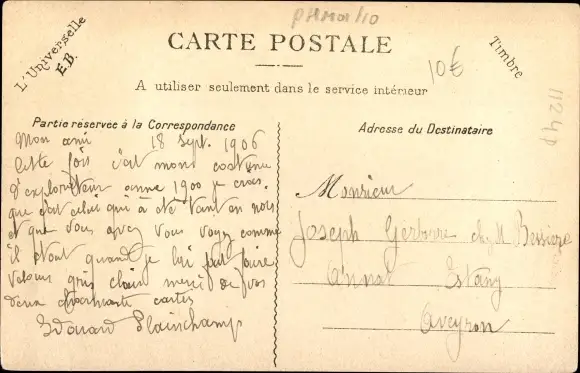 L'Universelle
E.B.
10€
CARTE POSTALE
Timbre
A utiliser seulement dans le service intérieur
Partie réservée à la Correspondance
Adresse du Destinataire
Mon ami 18 Sept. 1906
Cette fois c'est mond costume
d'exploriteur anne 1900 je crois.
que c'est celui qui à été tant en nois
et que vous avez Vous voyez comme
il était quand je lui fait faire
Velours gris clair merci de vos
deux charmante cartes
Edouard Plainchamp
Monsieur
Joseph Gerbore chez M. Bessiere
Annat Estaing
Aveyron